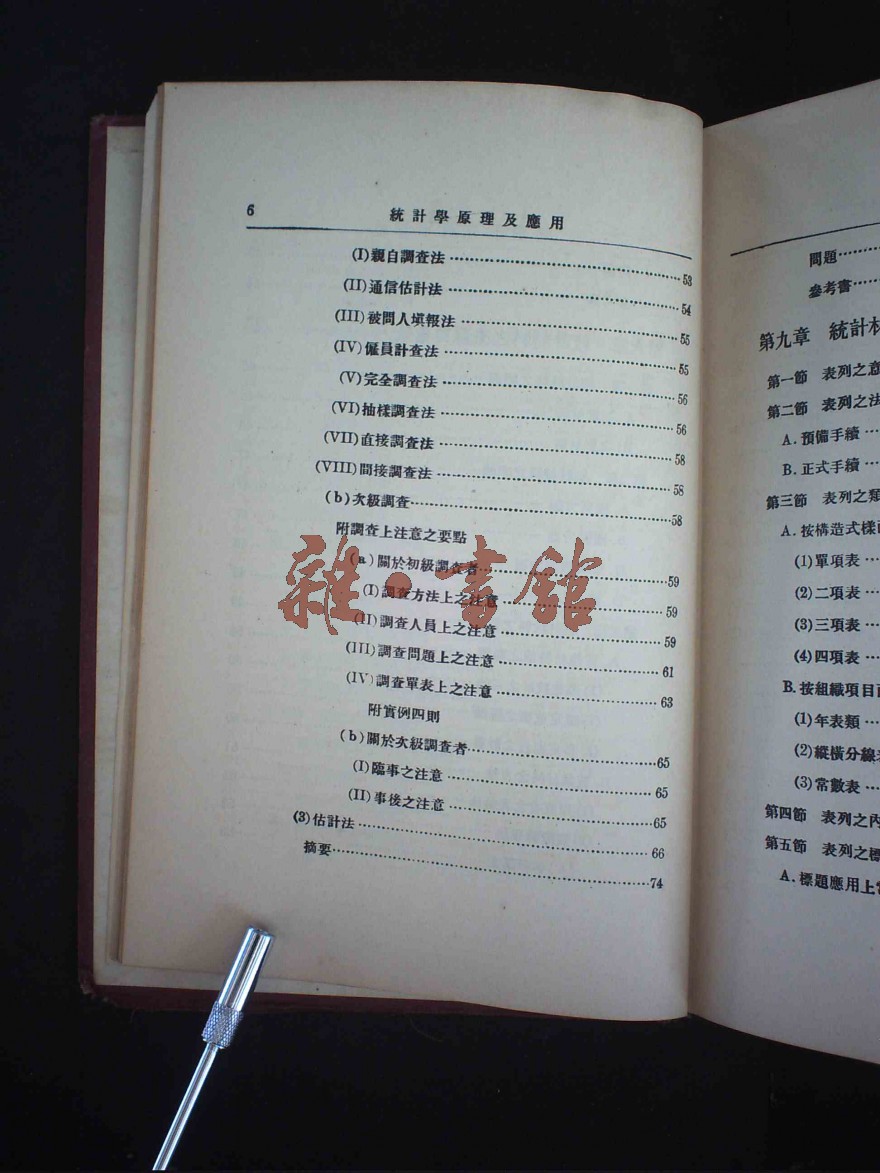 6
統計學原理及應用
(I)親自調查法……53
(II)通信估計法……54
(III)被問人填報法……55
(IV)僱員計查法……55
(V)完全調查法……56
(VI)抽樣調查法……56
(VII)直接調查法……58
(VIII)間接調查法……58
(b)次級調查……58
附調查上注意之要點
(a)關於初級調查者……59
(I)調查方法上之注意……59
(II)調查人員上之注意……59
(III)調查問題上之注意……61
(IV)調查單表上之注意……63
附實例四則
(b)關於次級調查者……65
(I)臨事之注意……65
(II)事後之注意……65
(3)估計法……66
摘要……74
雜·書館
問題……
參考書……
第九章 統計材
第一節 表列之意
第二節 表列之法
A.預備手續……
B.正式手續……
第三節 表列之類
A.按構造式樣
(1)單項表……
(2)二項表……
(3)三項表……
(4)四項表……
B.按組織項目
(1)年表類……
(2)縱橫分線
(3)常數表……
第四節 表列之內
第五節 表列之標
A.標題應用上